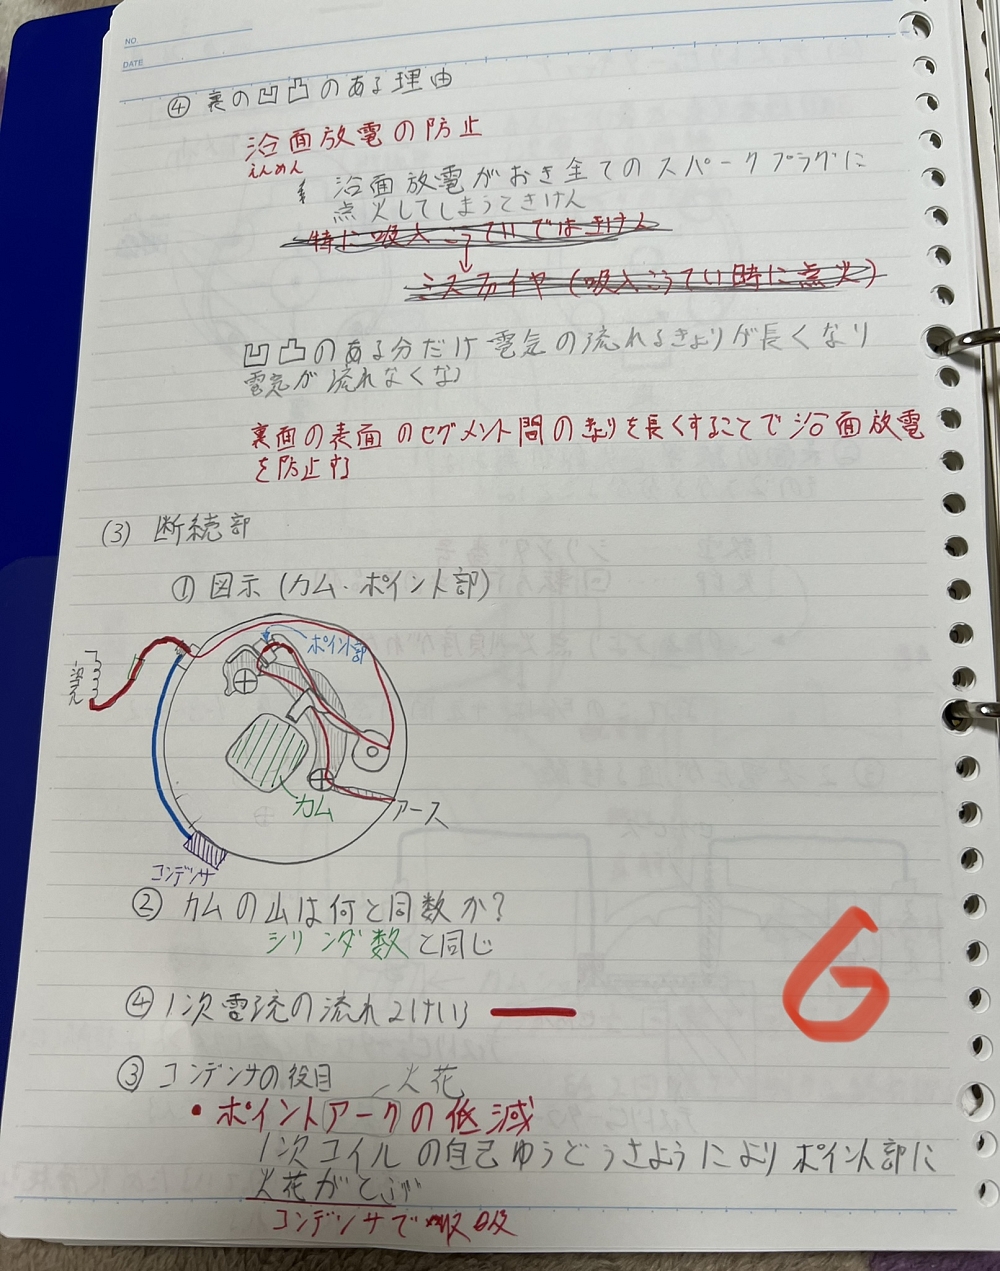 NO.
DATE
④ 裏の凹凸のある理由
沿面放電の防止
えんめん
沿面放電がおき全てのスパークプラグに
点火してしまうときけん
特に吸入こうていではきけん
ミスファイヤ(吸入こうてい時に点火)
凹凸のある分だけ電気の流れるきょりが長くなり
電気が流れなくなり
裏面の表面のセグメント間のきょりを長くすることで沿面放電
を防止する
(3) 断続部
① 図示(カム・ポイント部)
ポイント部
一次
カム
アース
コンデンサ
② カムの山は何と同数か?
シリンダ数と同じ
④ 1次電流の流れ
③ コンデンサの役目
火花
・ポイントアークの低減
1次コイルの自己ゆうどうさようによりポイント部に
火花がとぶ
コンデンサで吸収
6